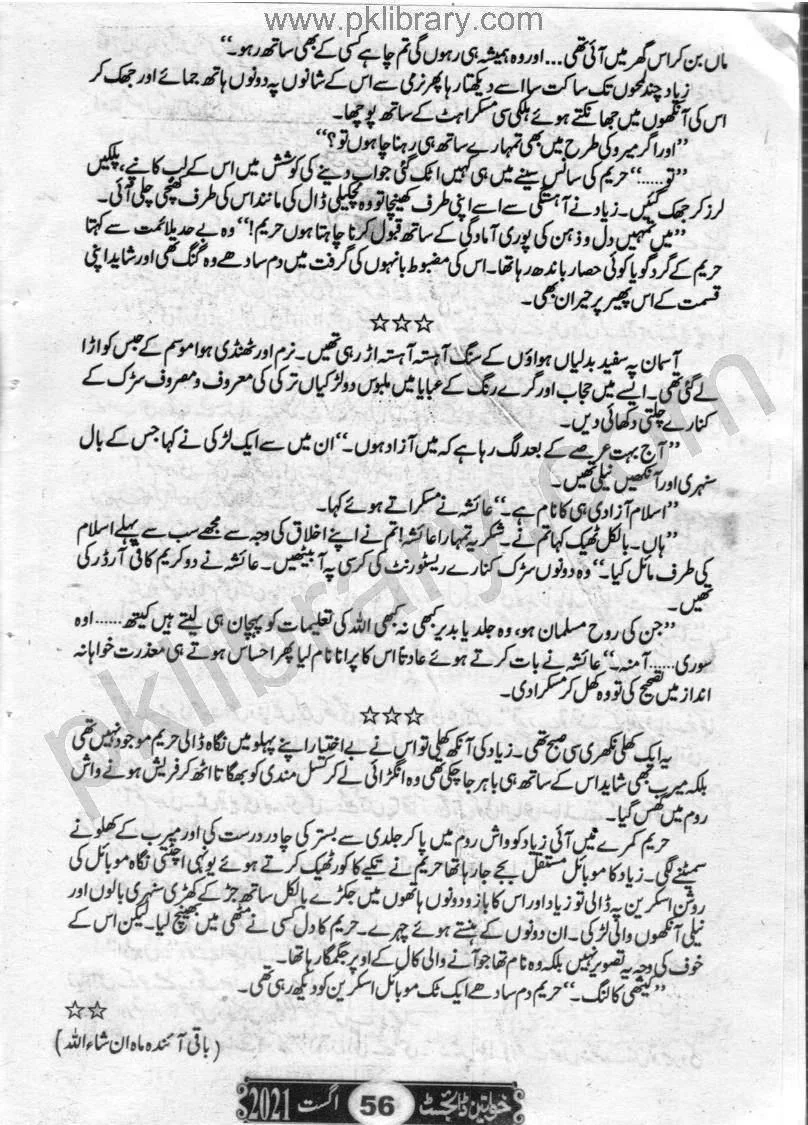 www.pklibrary.com
ماں بن کر اس گھر میں آئی تھی... اور وہ ہمیشہ ہی رہوں گی تم چاہے کسی کے بھی ساتھ رہو۔“
زیاد چند لمحوں تک ساکت سا اسے دیکھتا رہا پھر نرمی سے اس کے شانوں پہ دونوں ہاتھ جمائے اور جھک کر
اس کی آنکھوں میں جھانکتے ہوئے ہلکی سی مسکراہٹ کے ساتھ پوچھا۔
”اور اگر میرو کی طرح میں بھی تمہارے ساتھ ہی رہنا چاہوں تو؟“
”تو......“ حریم کی سانس سینے میں ہی کہیں اٹک گئی جواب دینے کی کوشش میں اس کے لب کانپے، پلکیں
لرز کر جھک گئیں۔ زیاد نے آہستگی سے اسے اپنی طرف کھینچا تو وہ لچکیلی ڈال کی مانند اس کی طرف کھنچی چلی آئی۔
”میں تمہیں دل و ذہن کی پوری آمادگی کے ساتھ قبول کرنا چاہتا ہوں حریم!“ وہ بے حد ملائمت سے کہتا
حریم کے گرد گویا کوئی حصار باندھ رہا تھا۔ اس کی مضبوط بانہوں کی گرفت میں دم سادھے وہ گنگ تھی اور شاید اپنی
قسمت کے اس پھیر پر حیران بھی۔
☆☆☆
آسمان پہ سفید بدلیاں ہواؤں کے سنگ آہستہ آہستہ اڑ رہی تھیں۔ نرم اور ٹھنڈی ہوا موسم کے حبس کو اڑا
لے گئی تھی۔ ایسے میں حجاب اور گرے رنگ کے عبایا میں ملبوس دو لڑکیاں ترکی کی معروف و مصروف سڑک کے
کنارے چلتی دکھائی دیں۔
”آج بہت عرصے کے بعد لگ رہا ہے کہ میں آزاد ہوں۔“ ان میں سے ایک لڑکی نے کہا جس کے بال
سنہری اور آنکھیں نیلی تھیں۔
”اسلام آزادی ہی کا نام ہے۔“ عائشہ نے مسکراتے ہوئے کہا۔
”ہاں۔ بالکل ٹھیک کہا تم نے۔ شکریہ تمہارا عائشہ! تم نے اپنے اخلاق کی وجہ سے مجھے سب سے پہلے اسلام
کی طرف مائل کیا۔“ وہ دونوں سڑک کنارے ریسٹورنٹ کی کرسی پہ آ بیٹھیں۔ عائشہ نے دو کریم کافی آرڈر کی
تھیں۔
”جن کی روح مسلمان ہو، وہ جلد یا بدیر کبھی نہ کبھی اللہ کی تعلیمات کو پہچان ہی لیتے ہیں کیتھ...... اوہ
سوری...... آمنہ۔“ عائشہ نے بات کرتے ہوئے عادتاً اس کا پرانا نام لیا پھر احساس ہوتے ہی معذرت خواہانہ
انداز میں تصحیح کی تو وہ کھل کر مسکرا دی۔
☆☆☆
یہ ایک کھلی نکھری سی صبح تھی۔ زیاد کی آنکھ کھلی تو اس نے بے اختیار اپنے پہلو میں نگاہ ڈالی حریم موجود نہیں تھی
بلکہ میرب بھی شاید اس کے ساتھ ہی باہر جا چکی تھی وہ انگڑائی لے کر کسل مندی کو بھگاتا اٹھ کر فریش ہونے واش
روم میں گھس گیا۔
حریم کمرے میں آئی زیاد کو واش روم میں پا کر جلدی سے بستر کی چادر درست کی اور میرب کے کھلونے
سمیٹنے لگی۔ زیاد کا موبائل مستقل بجے جا رہا تھا حریم نے تکیے کا کور ٹھیک کرتے ہوئے یونہی اچٹتی نگاہ موبائل کی
روشن اسکرین پہ ڈالی تو زیاد اور اس کا بازو دونوں ہاتھوں میں جکڑے بالکل ساتھ جڑ کے کھڑی سنہری بالوں اور
نیلی آنکھوں والی لڑکی۔ ان دونوں کے ہنستے ہوئے چہرے۔ حریم کا دل کسی نے مٹھی میں بھینچ لیا۔ لیکن اس کے
خوف کی وجہ یہ تصویر نہیں بلکہ وہ نام تھا جو آنے والی کال کے اوپر جگمگا رہا تھا۔
”کیتھی کالنگ۔“ حریم دم سادھے ایک ٹک موبائل اسکرین کو دیکھ رہی تھی۔
☆☆
(باقی آئندہ ماہ ان شاء اللہ)
خواتین ڈائجسٹ 56 اگست 2021
pklibrary.com